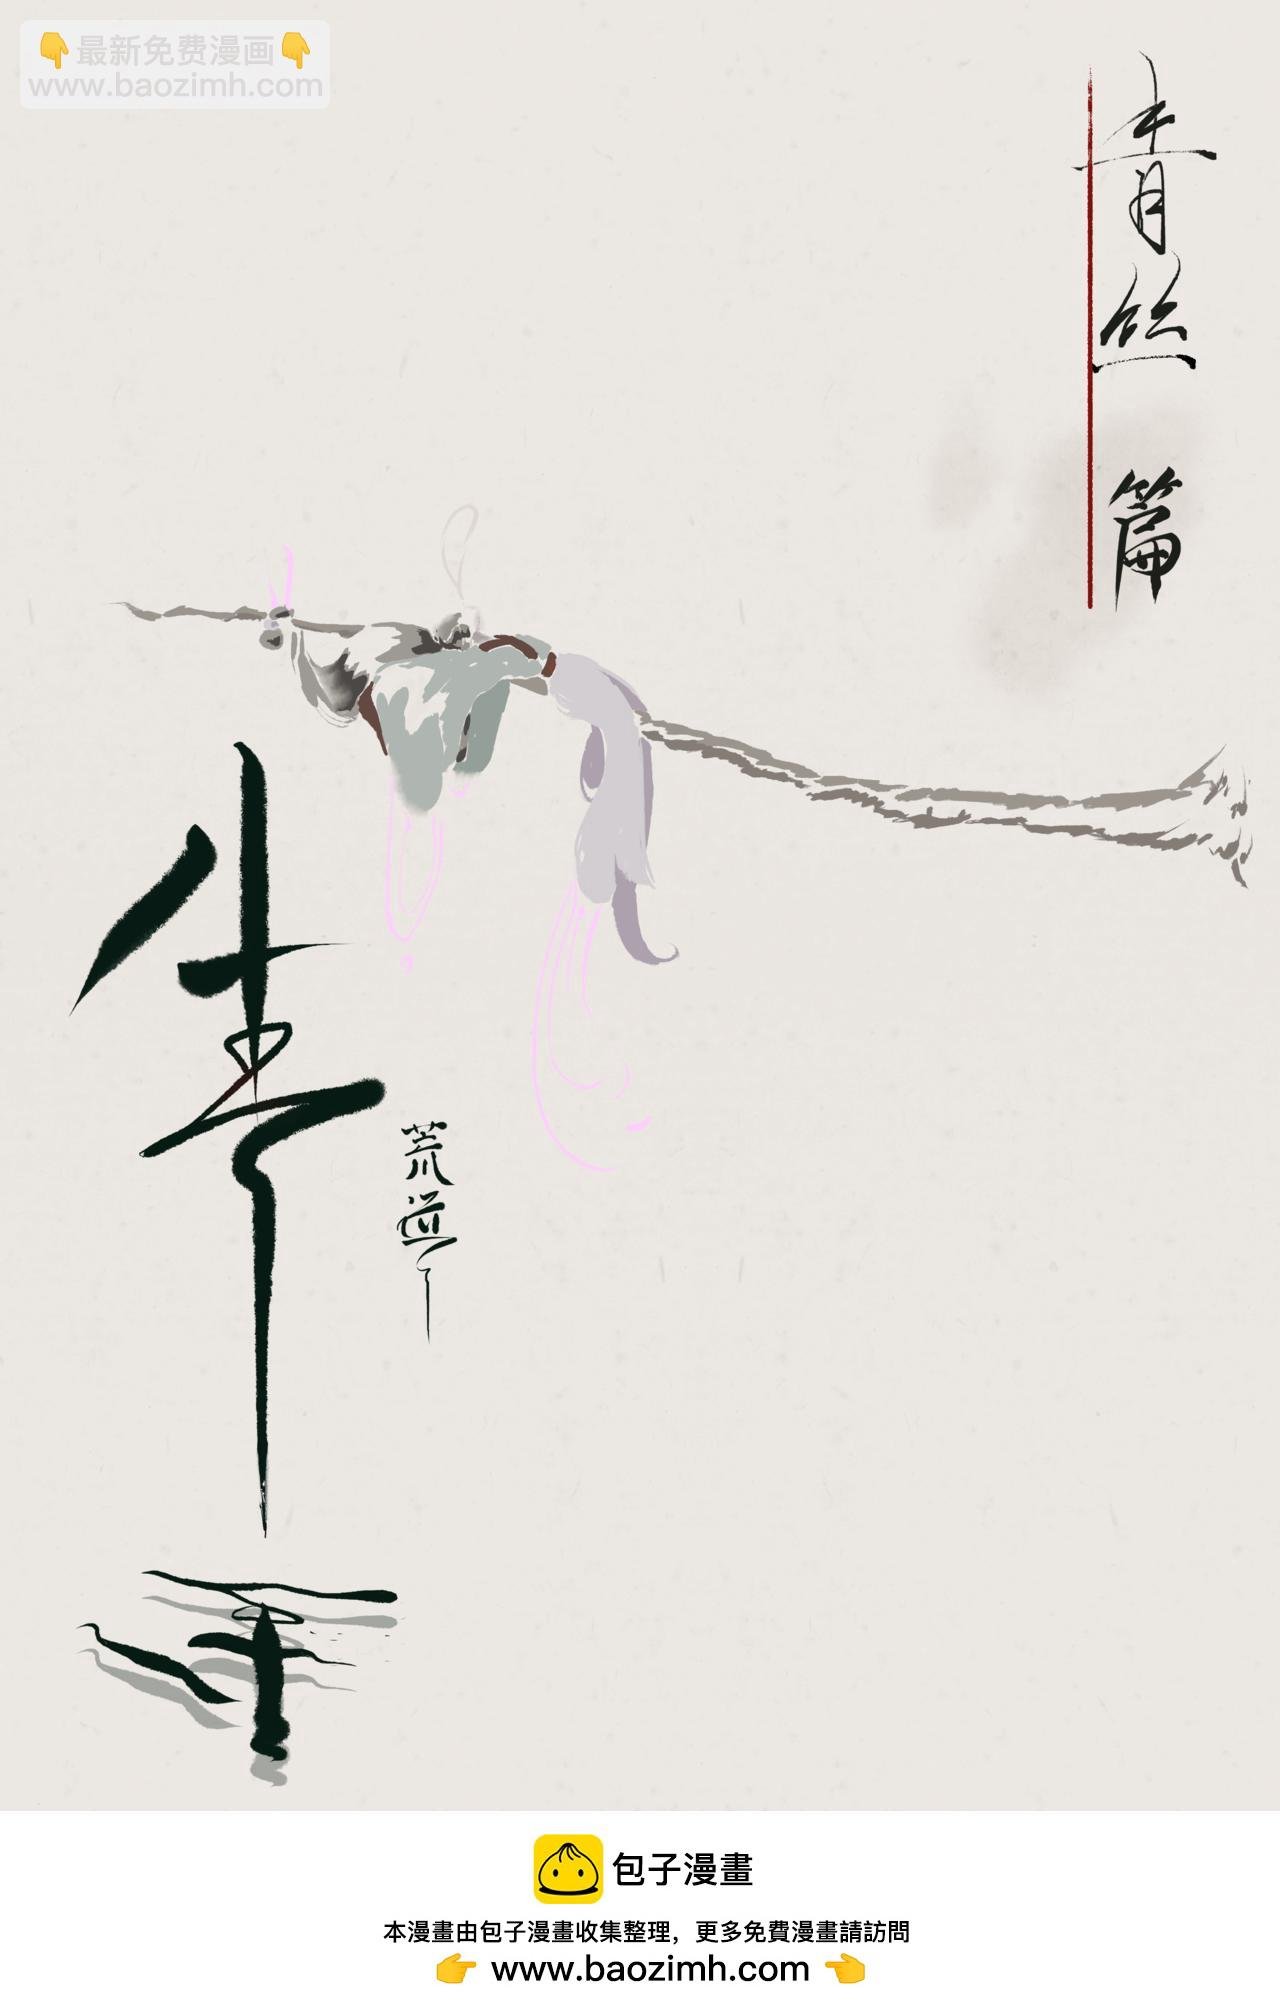 👇最新免费漫画👇
www.baozimh.com
青丝 篇
荒道
包子漫畫
本漫畫由包子漫畫收集整理，更多免費漫畫請訪問
👉 www.baozimh.com 👈